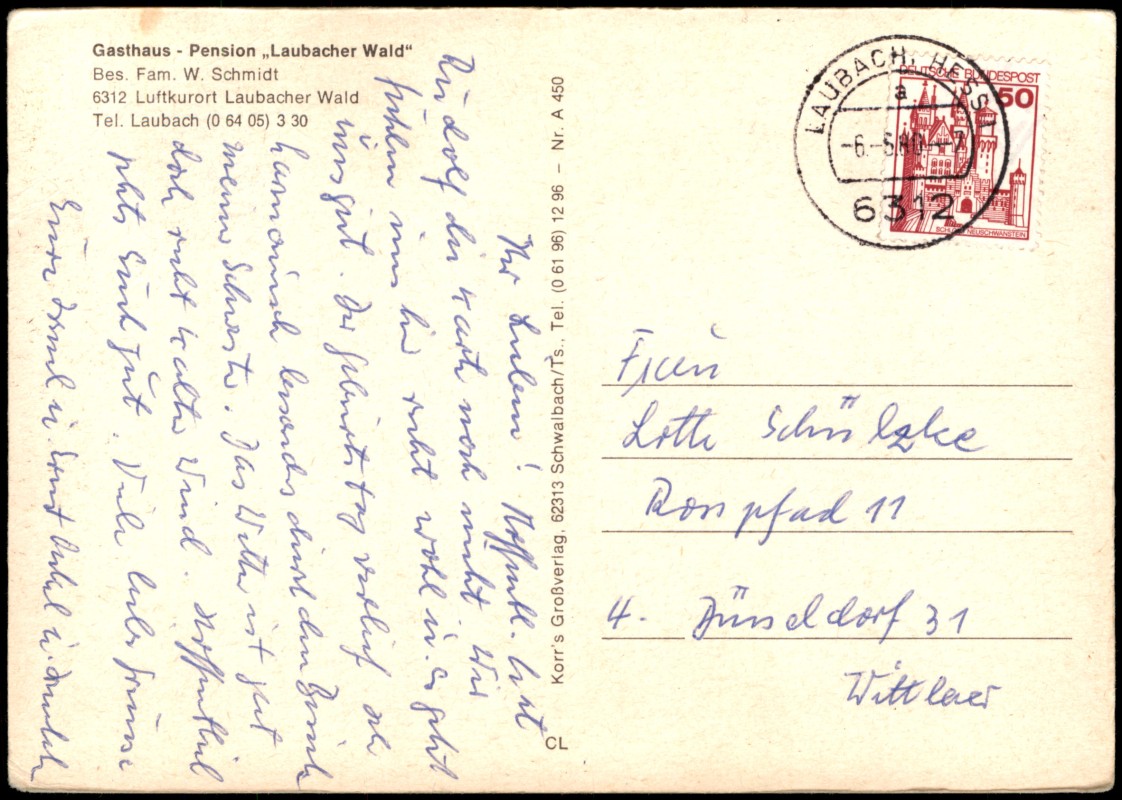 Gasthaus - Pension „Laubacher Wald"
Bes. Fam. W. Schmidt
6312 Luftkurort Laubacher Wald
Tel. Laubach (0 64 05) 3 30
Ihr Lieben! Hoffentl. hat
Rudolf die Karte noch nicht. Wir
fühlen uns hier recht wohl u. es geht
uns gut. Der Geburtstag verlief sehr
harmonisch besonders durch den Besuch
meiner Schwester. Das Wetter ist gut
doch recht kalter Wind. Hoffentlich
gehts Euch gut. Viele liebe Grüsse
Eure u. Onkel u.
Korr's Großverlag, 62313 Schwalbach/Ts., Tel. (0 61 96) 12 96 – Nr. A 450
CL
LAUBACH, HESS 1
a
6312
DEUTSCHE BUNDESPOST
50
SCHLOSS NEUSCHWANSTEIN
Frau
Lotte
Rosspfad 11
4. Düsseldorf 31
Wittlaer